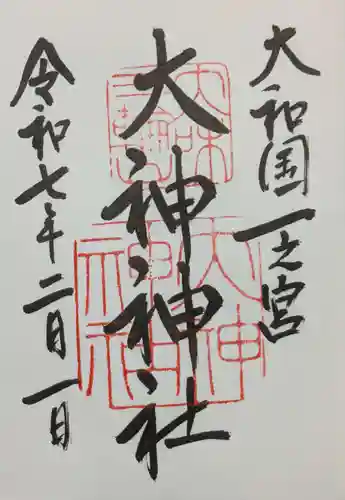 大和国一之宮
大神神社
令和七年二月一日
大神神社